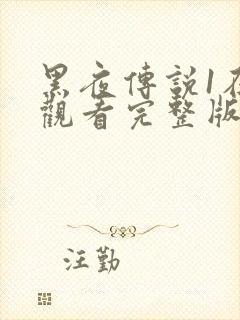 黑夜傳説1在
觀看完整版
汪勤